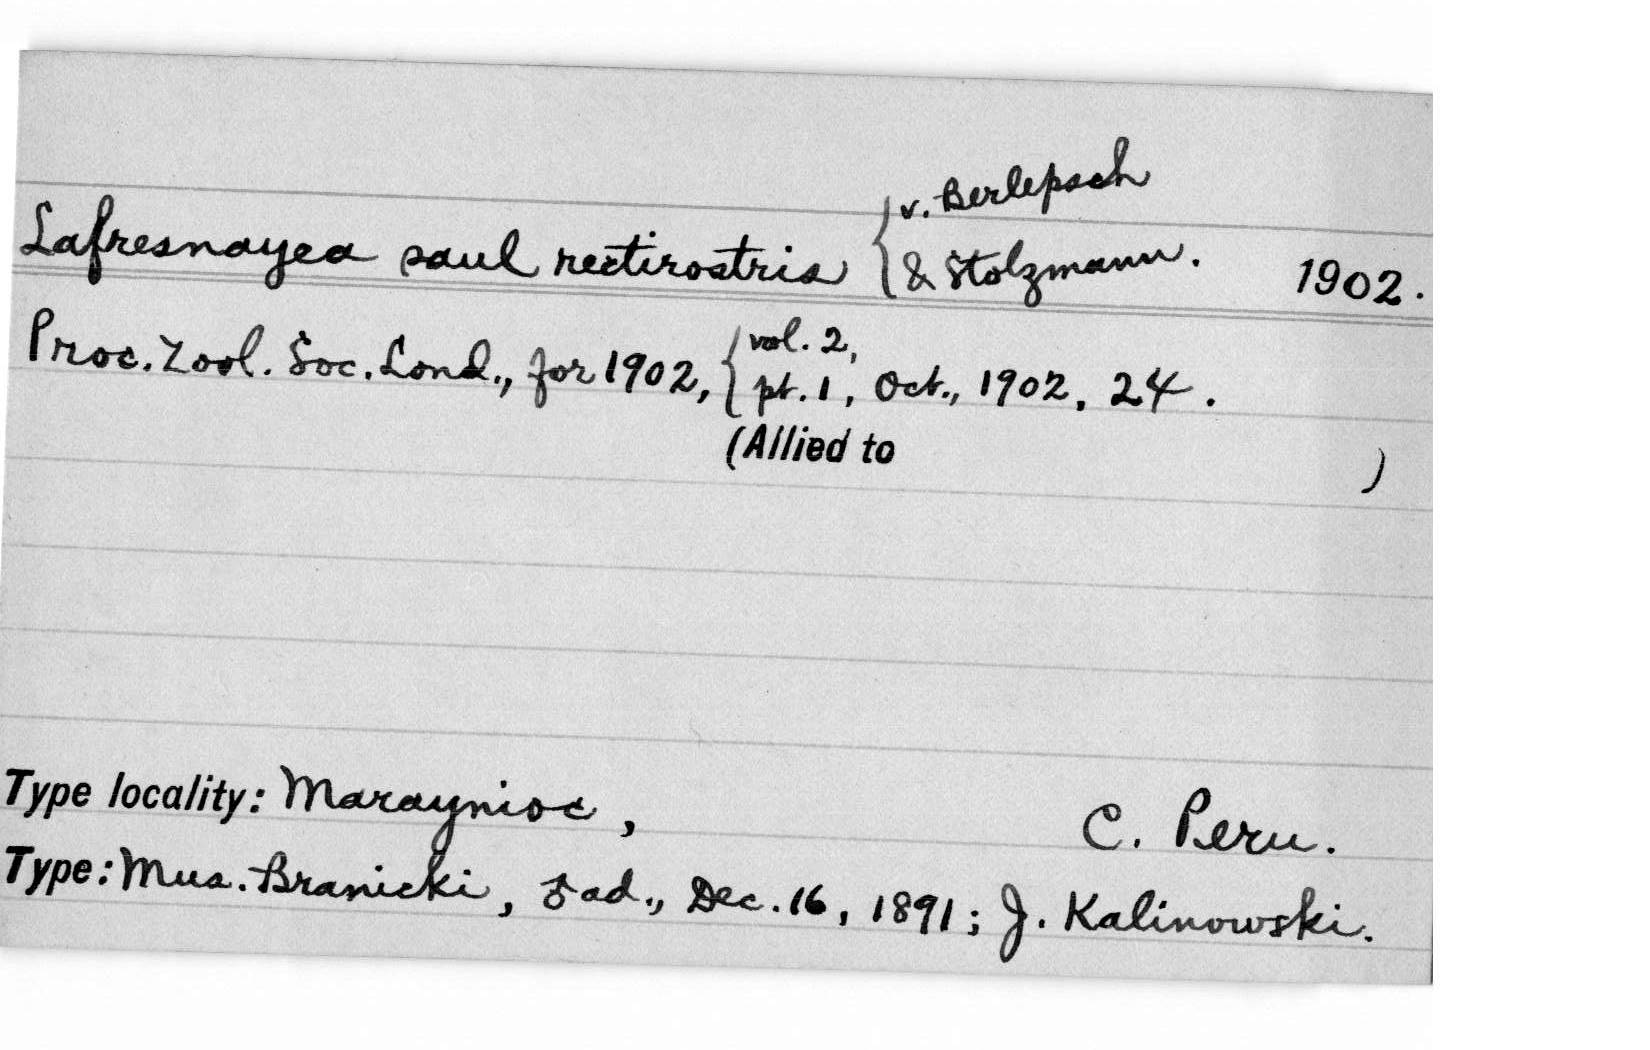 Lafresnayea saul rectirostris { v. Berlepsch
& Stolzmann. 1902.
Proc. Zool. Soc. Lond., for 1902, { vol. 2,
pt. 1, Oct., 1902, 24.
(Allied to )
Type locality: Maraynioc, C. Peru.
Type: Mus. Branicki, ♂ ad., Dec. 16, 1891; J. Kalinowski.